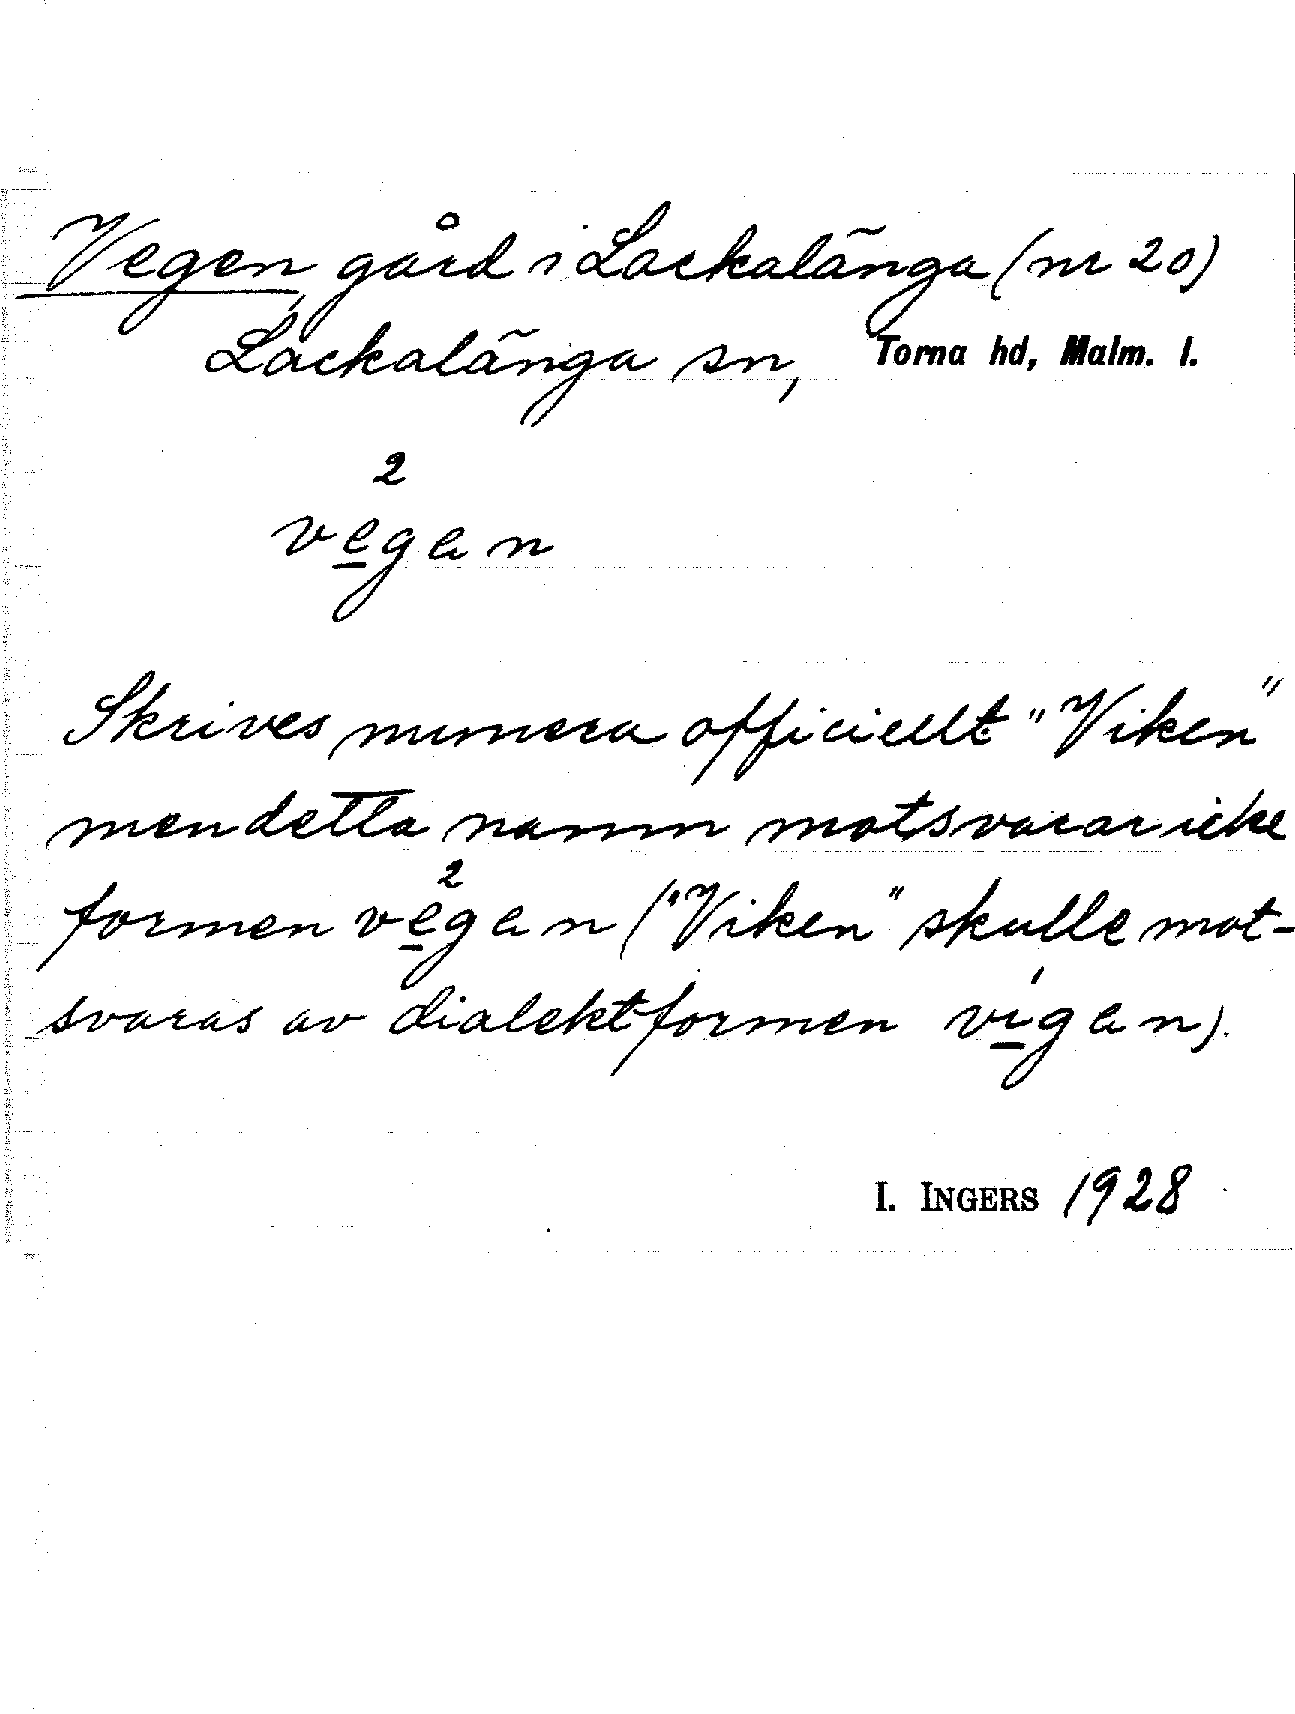 Vegen, gård i Lackalänga (nr 20)
Lackalänga sn, Torna hd, Malm. l.
2
vega n
Skrives numera officiellt "Viken"
men detta namn motsvarar icke
2
formen vega n ("Viken" skulle mot-
svaras av dialektformen viga n).
I. INGERS 1928